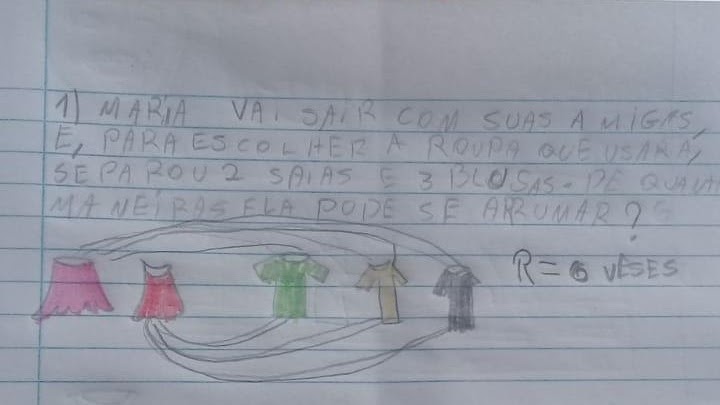 1) MARIA VAI SAIR COM SUAS AMIGAS,
E, PARA ESCOLHER A ROUPA QUE USARÁ,
SEPAROU 2 SAIAS E 3 BLUSAS. DE
MANEIRAS ELA PODE SE ARRUMAR?
R = 6 VESES